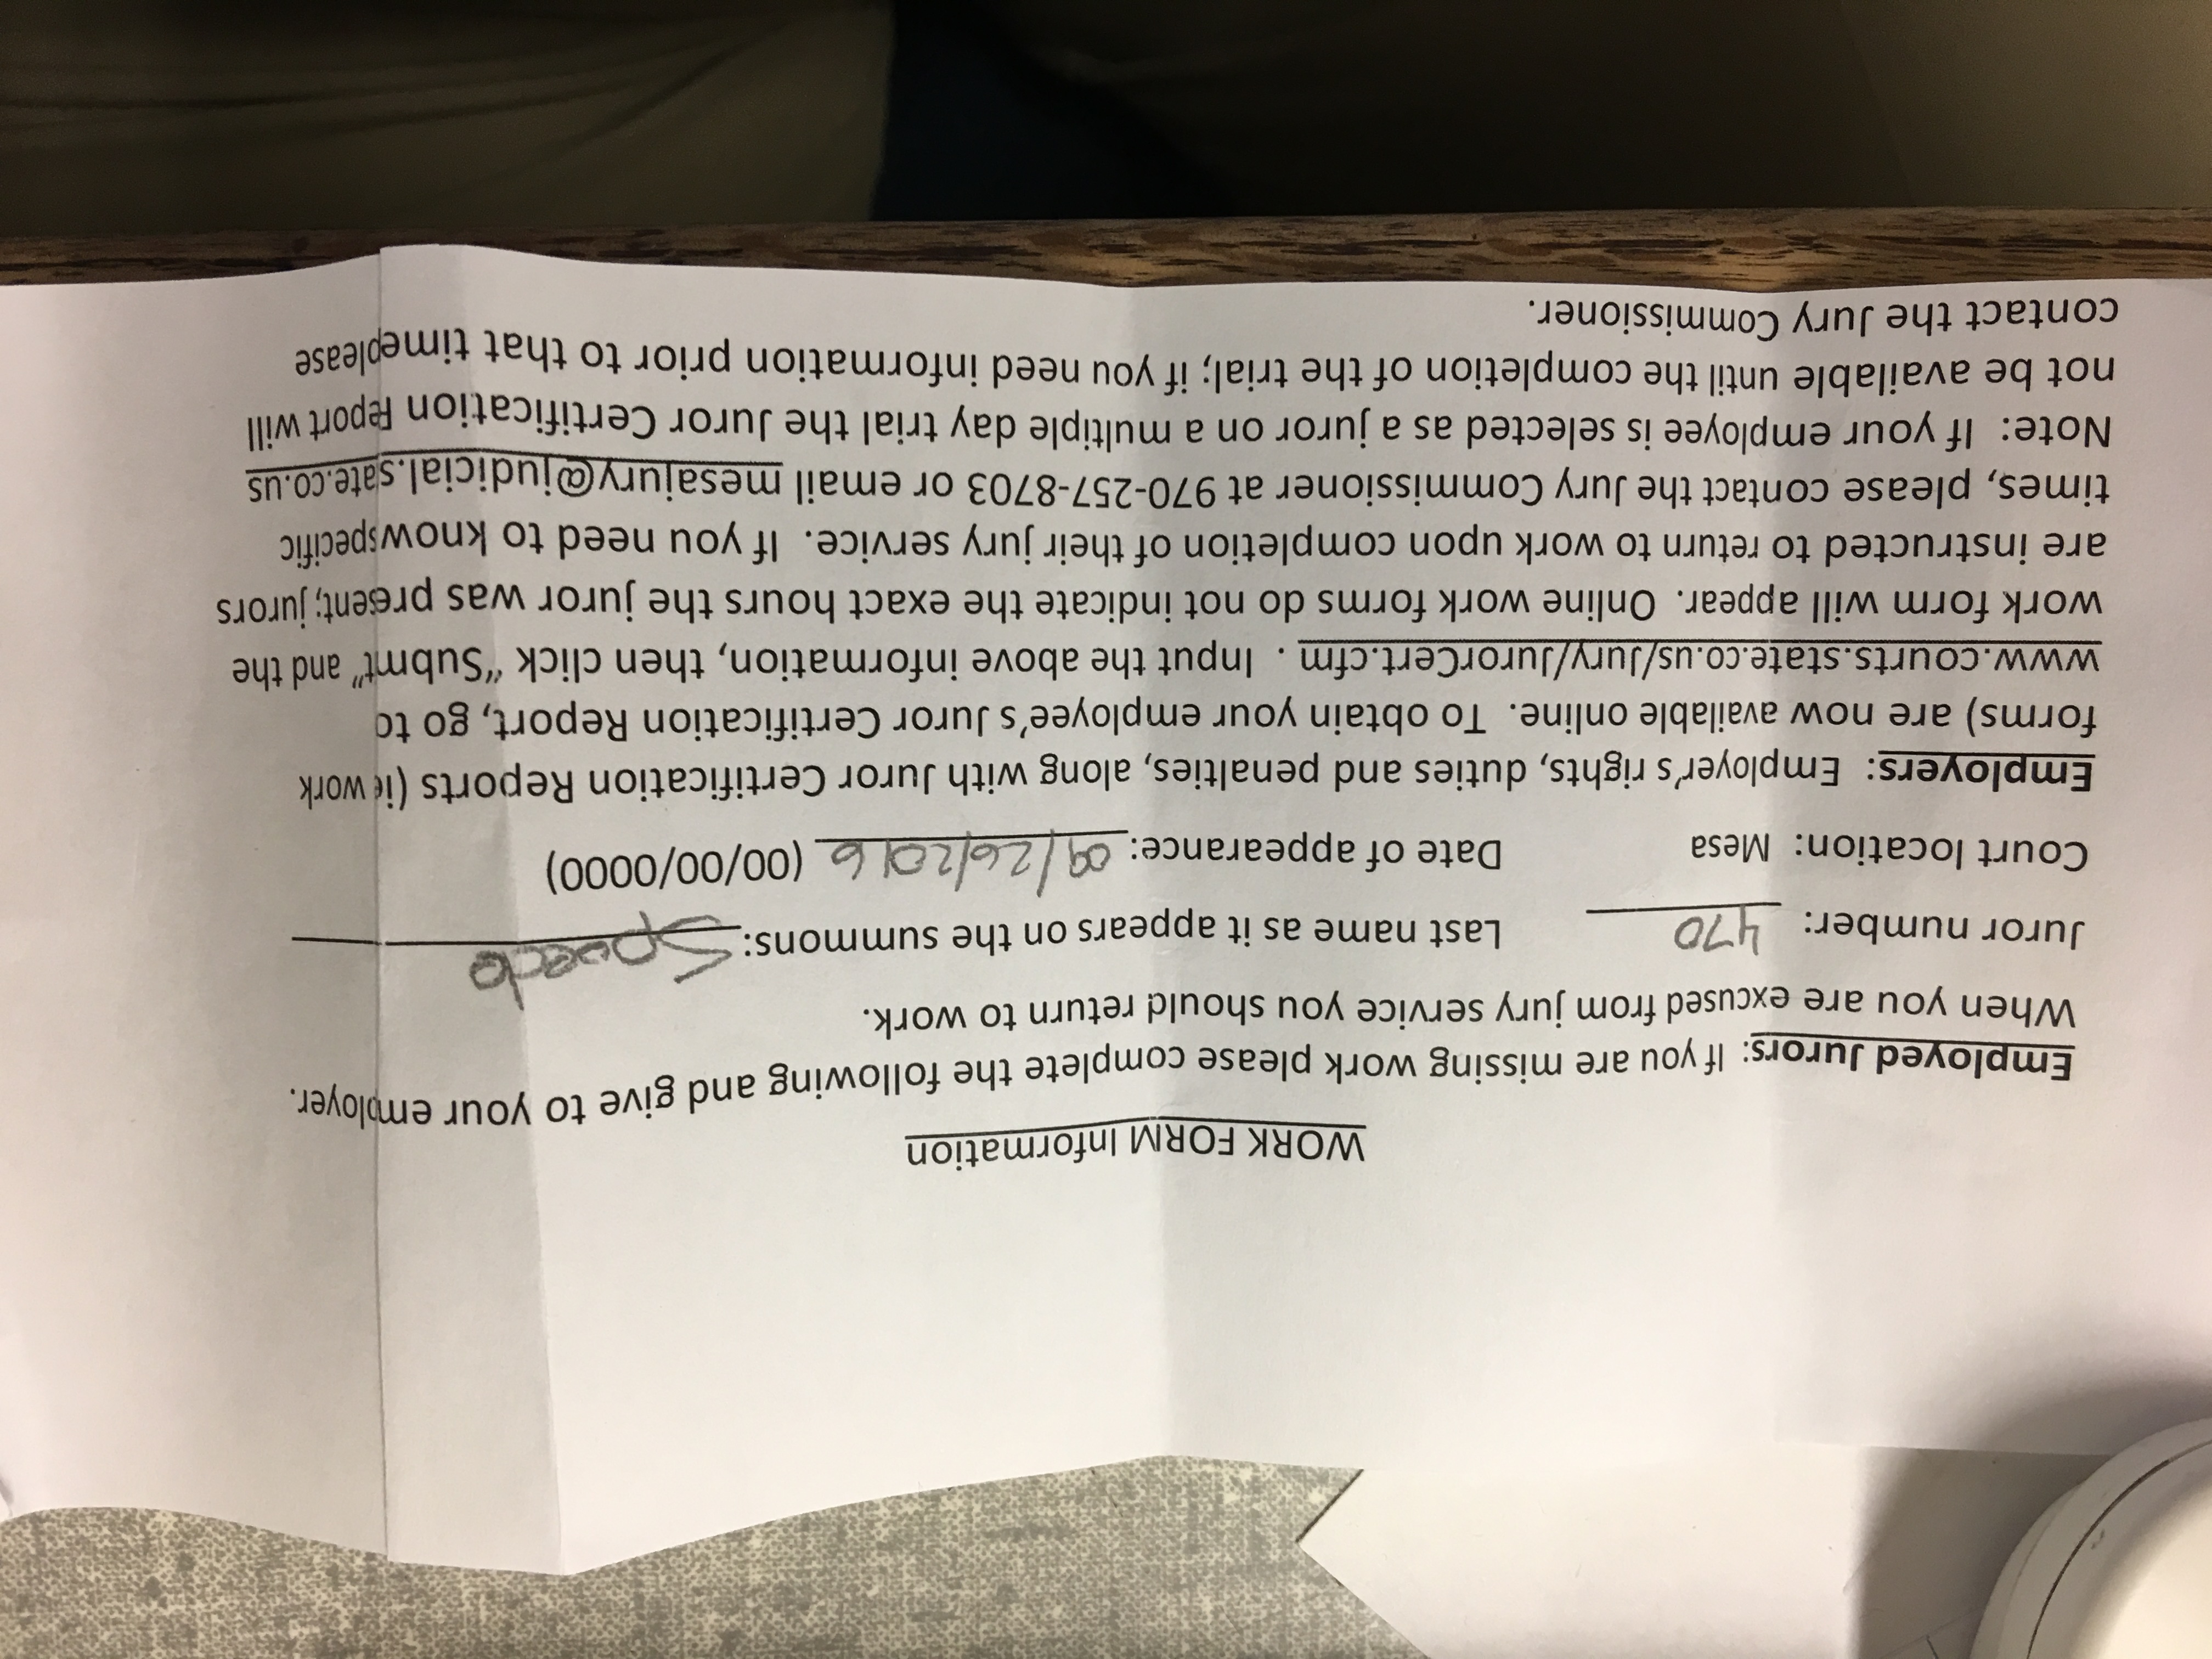 WORK FORM Information
Employed Jurors: If you are missing work please complete the following and give to your employer.
When you are excused from jury service you should return to work.
Juror number: 470 Last name as it appears on the summons:
Court location: Mesa Date of appearance: 09/26/2016 (00/00/0000)
Employers: Employer's rights, duties and penalties, along with Juror Certification Reports (ie work
forms) are now available online. To obtain your employee's Juror Certification Report, go to
www.courts.state.co.us/Jury/JurorCert.cfm . Input the above information, then click "Submt" and the
work form will appear. Online work forms do not indicate the exact hours the juror was present; jurors
are instructed to return to work upon completion of their jury service. If you need to know specific
times, please contact the Jury Commissioner at 970-257-8703 or email mesajury@judicial.sate.co.us
Note: If your employee is selected as a juror on a multiple day trial the Juror Certification Report will
not be available until the completion of the trial; if you need information prior to that time please
contact the Jury Commissioner.